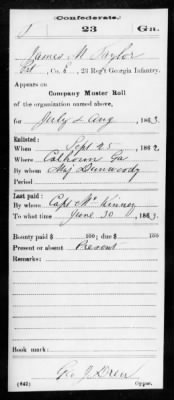 Confederate.
23
Ga.
James M Taylor
Pvt, Co. 23 Reg't Georgia Infantry.
Appears on
Company Muster Roll
of the organization named above,
for July & Aug, 1863.
Enlisted:
When Sept 25, 1862.
Where Calhoun Ga
By whom Maj Dunwoody
Period
Last paid:
By whom Capt McKinney
To what time June 30, 1863.
Bounty paid $ 100; due $ 100
Present or absent Present
Remarks:
Book mark:
Geo J Drew
(642) Copyist.